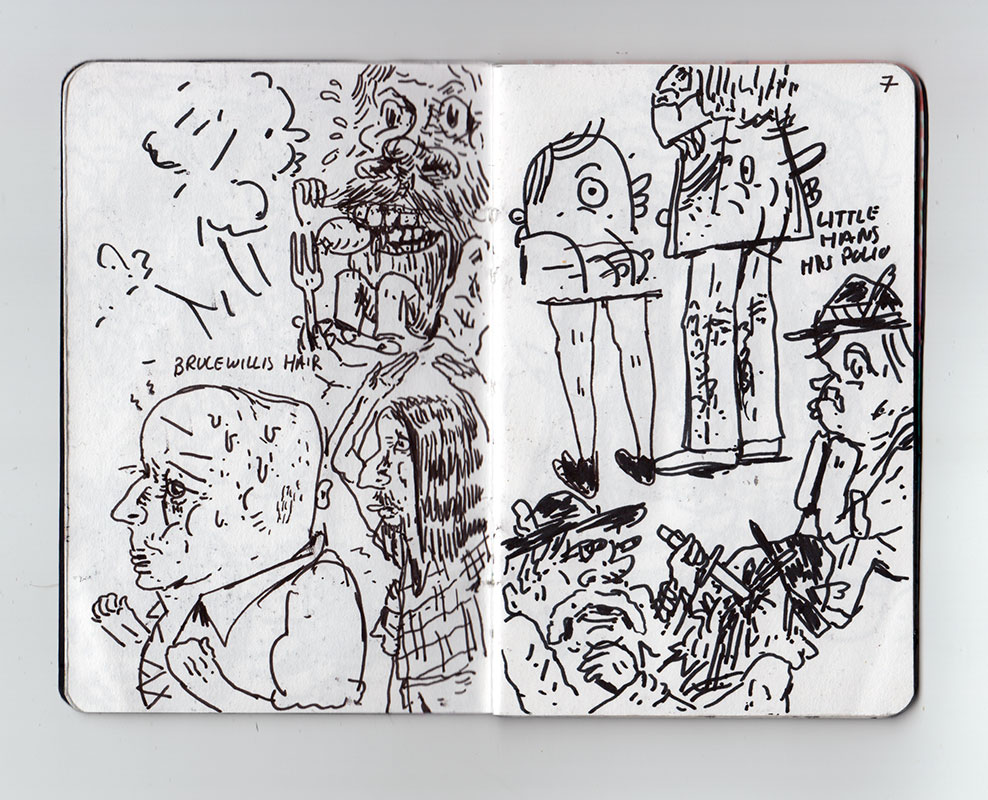 BRUCE WILLIS HAIR
7
LITTLE
HANS
HAS POLIO